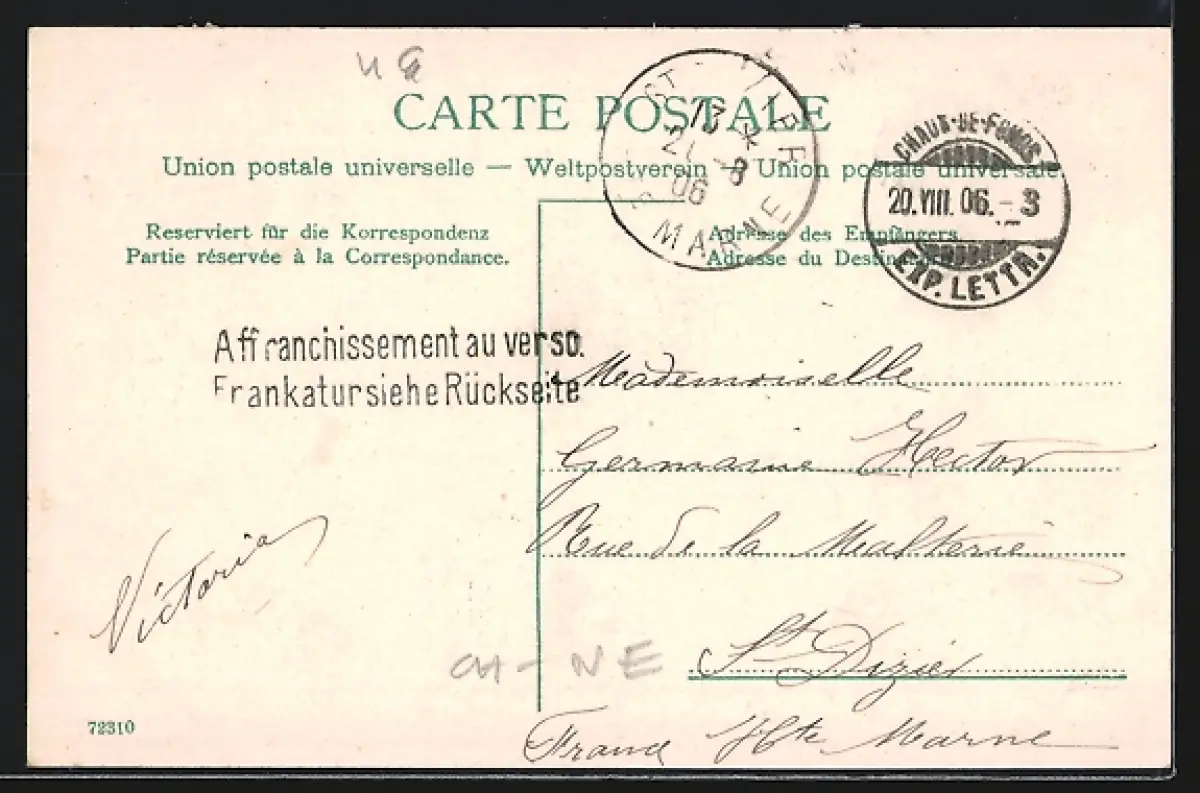 CARTE POSTALE
Union postale universelle — Weltpostverein — Union postale universale
Reserviert für die Korrespondenz
Partie réservée à la Correspondance.
Adresse des Empfängers.
Adresse du
MARNE
13
06
CHAUX-DE-FONDS
20.VIII.06.-3
EXP. LETTR.
Affranchissement au verso.
Frankatur siehe Rückseite
Mademoiselle
Germaine Hector
Rue de la Malterie
St Dizier
France Hte Marne
Victoria
CH - NE
72310